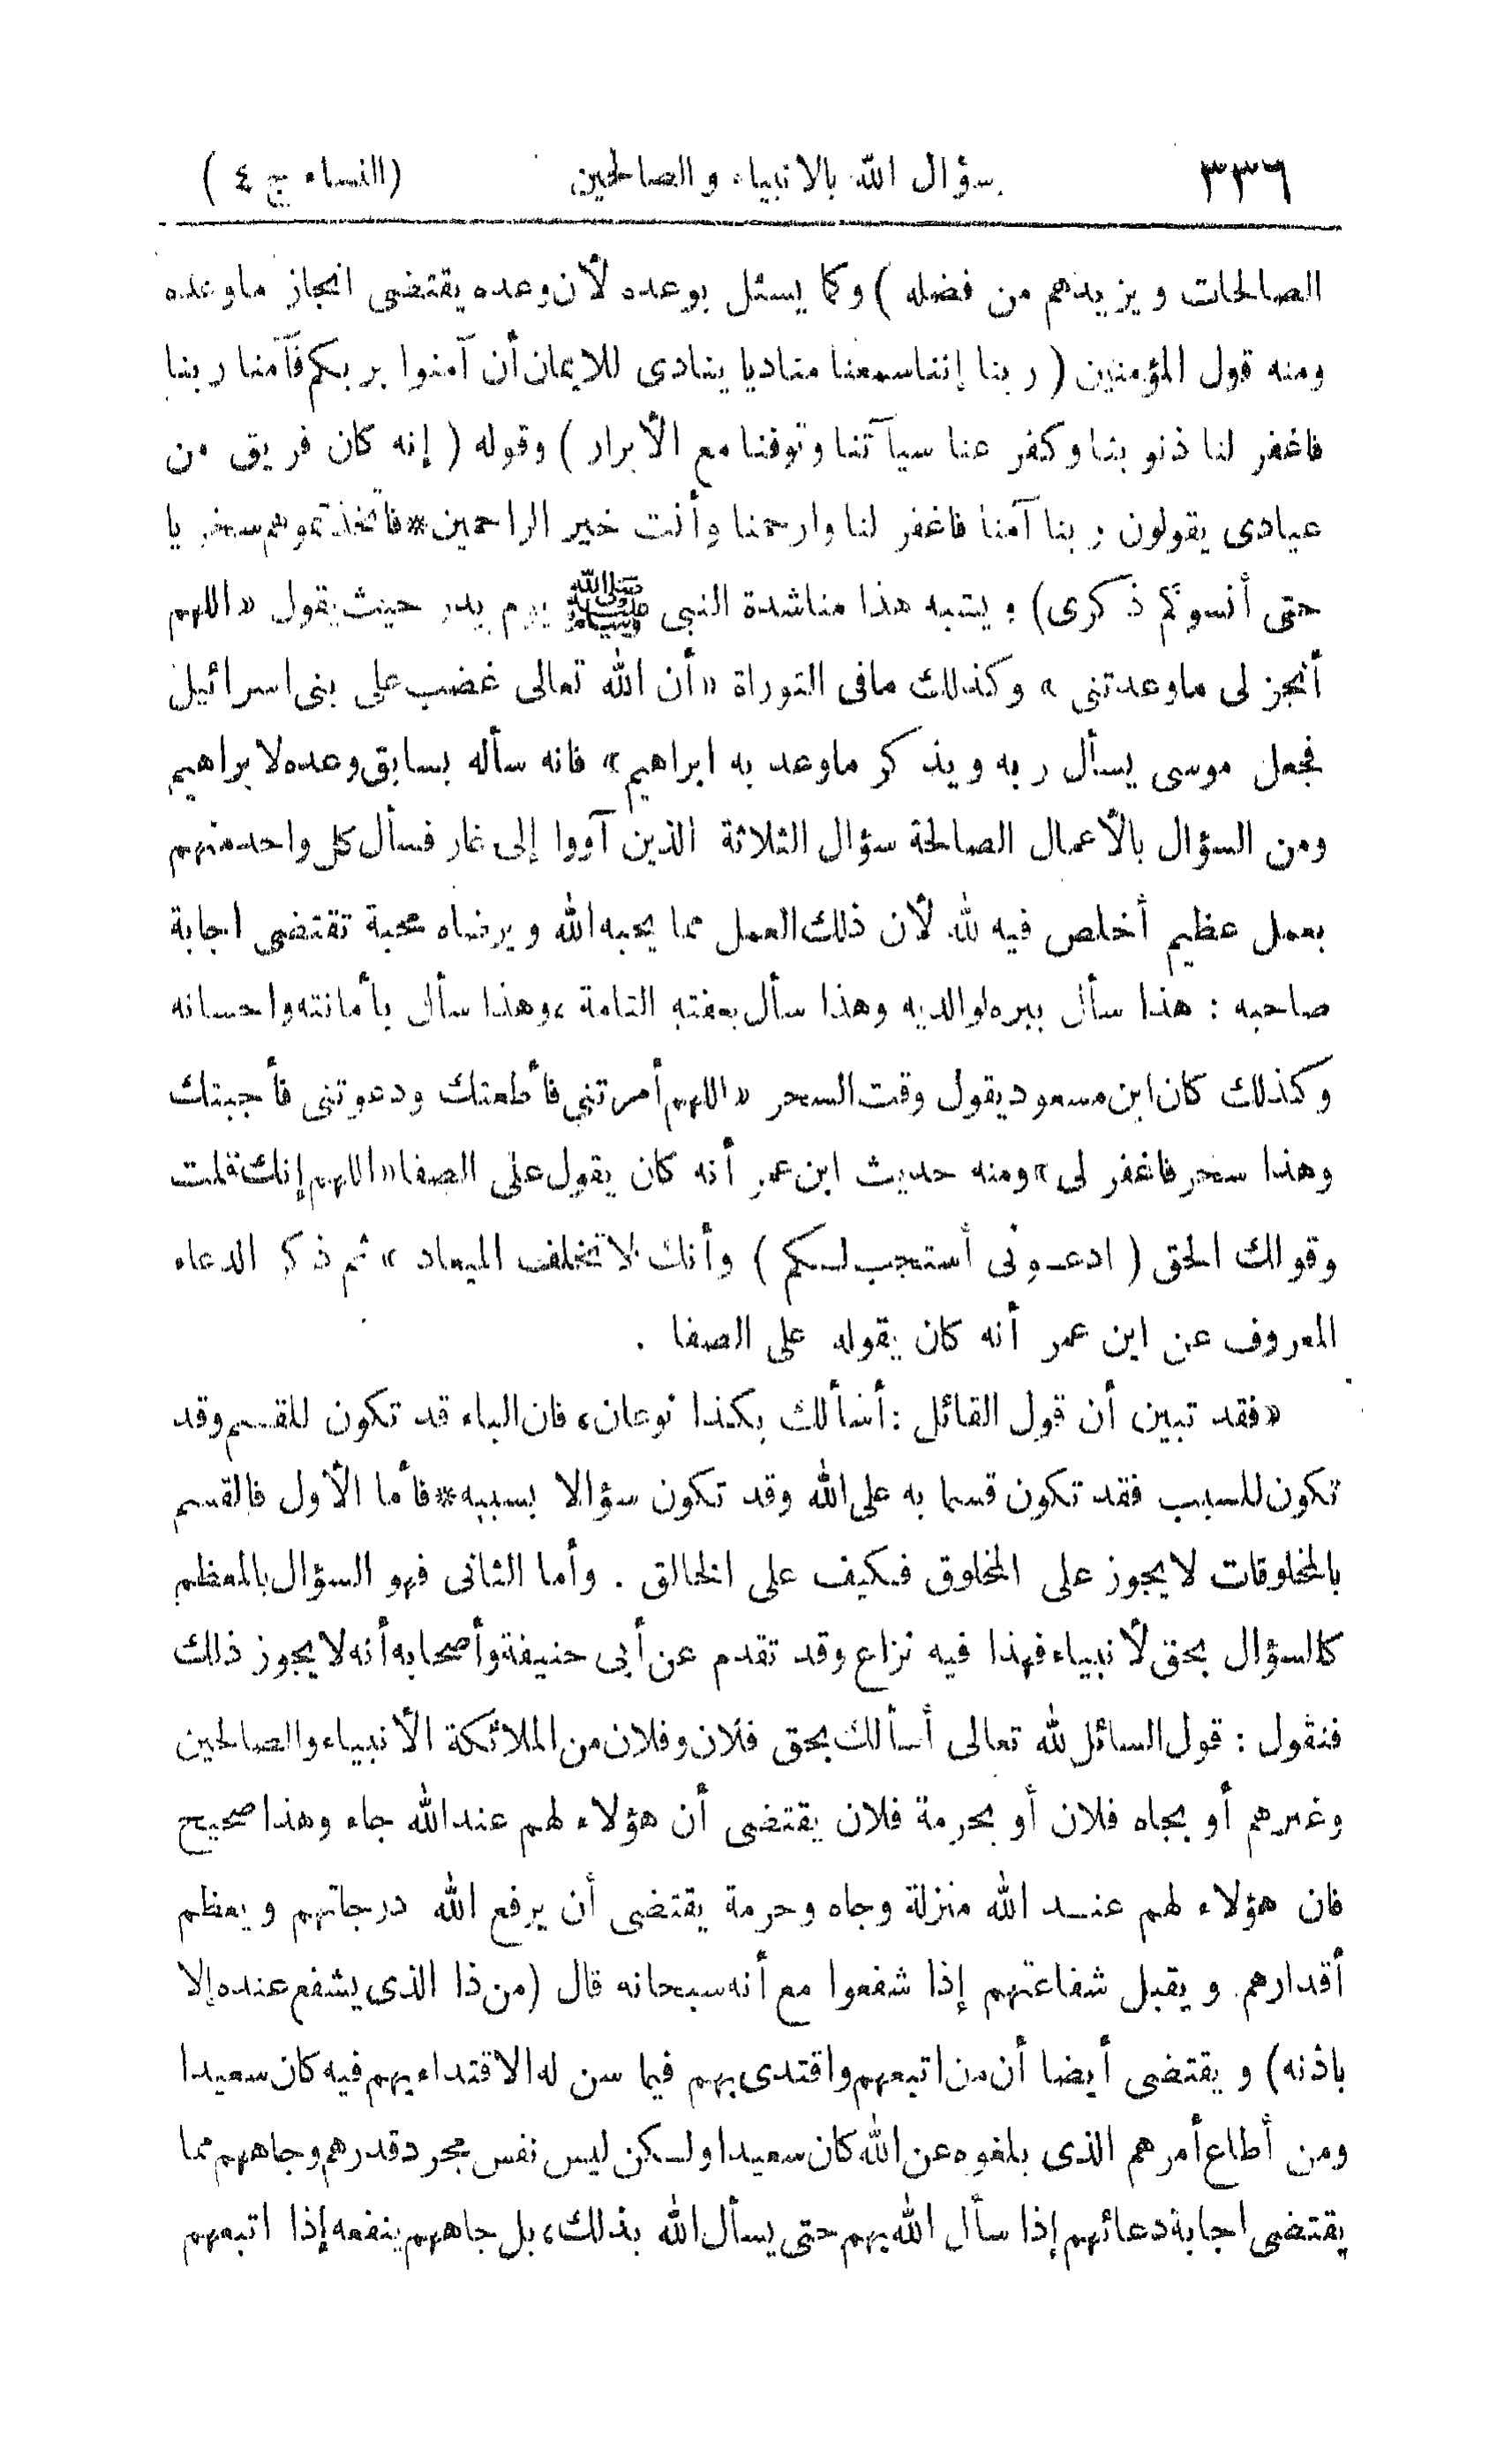 ٣٣٦ سؤال الله بالانبياء والصالحين (النساء ج ٤)
الصالحات ويزيدهم من فضله) وكما يسئل بوعده لأن وعده يقتضى انجاز ماوعده
ومنه قول المؤمنين (ربنا إننا سمعنا مناديا ينادى للايمان أن آمنوا بربكم فآمنا ربنا
فاغفر لنا ذنوبنا وكفر عنا سيآتنا وتوفنا مع الأبرار) وقوله (إنه كان فريق من
عبادى يقولون ربنا آمنا فاغفر لنا وارحمنا وأنت خير الراحمين * فاتخذتموهم سخريا
حتى أنسوكم ذكرى) ويشبه هذا مناشدة النبى ﷺ يوم بدر حيث يقول «اللهم
أنجز لى ماوعدتنى» وكذلك مافى التوراة «أن الله تعالى غضب على بنى اسرائيل
فجعل موسى يسأل ربه ويذكر ماوعد به ابراهيم» فانه سأله بسابق وعده لابراهيم
ومن السؤال بالأعمال الصالحة سؤال الثلاثة الذين آووا إلى غار فسأل كل واحد منهم
بعمل عظيم أخلص فيه لله لأن ذلك العمل مما يحبه الله ويرضاه محبة تقتضى اجابة
صاحبه : هذا سأل ببره لوالديه وهذا سأل بعفته التامة ، وهذا سأل بأمانته واحسانه
وكذلك كان ابن مسعود يقول وقت السحر «اللهم أمرتنى فأطعتك ودعوتنى فأجبتك
وهذا سحر فاغفر لى» ومنه حديث ابن عمر أنه كان يقول على الصفا «اللهم إنك قلت
وقولك الحق (ادعونى أستجب لكم) وأنك لا تخلف الميعاد» ثم ذكر الدعاء
المعروف عن ابن عمر أنه كان يقوله على الصفا .
«فقد تبين أن قول القائل : أسألك بكذا نوعان ، فان الباء قد تكون للقسم وقد
تكون للسبب فقد تكون قسما به على الله وقد تكون سؤالا بسببه * فأما الأول فالقسم
بالمخلوقات لا يجوز على المخلوق فكيف على الخالق . وأما الثانى فهو السؤال بالمعظم
كالسؤال بحق لأنبياء فهذا فيه نزاع وقد تقدم عن أبى حنيفة وأصحابه أنه لا يجوز ذلك
فنقول : قول السائل لله تعالى أسألك بحق فلان وفلان من الملائكة الأنبياء والصالحين
وغيرهم أو بجاه فلان أو بحرمة فلان يقتضى أن هؤلاء لهم عند الله جاه وهذا صحيح
فان هؤلاء لهم عند الله منزلة وجاه وحرمة يقتضى أن يرفع الله درجاتهم ويعظم
أقدارهم ويقبل شفاعتهم إذا شفعوا مع أنه سبحانه قال (من ذا الذى يشفع عنده إلا
باذنه) ويقتضى أيضا أن من اتبعهم واقتدى بهم فيما سن له الاقتداء بهم فيه كان سعيدا
ومن أطاع أمرهم الذى بلغوه عن الله كان سعيدا ولكن ليس نفس مجرد قدرهم وجاههم مما
يقتضى اجابة دعائهم إذا سأل الله بهم حتى يسأل الله بذلك ، بل جاههم ينفعه إذا اتبعهم